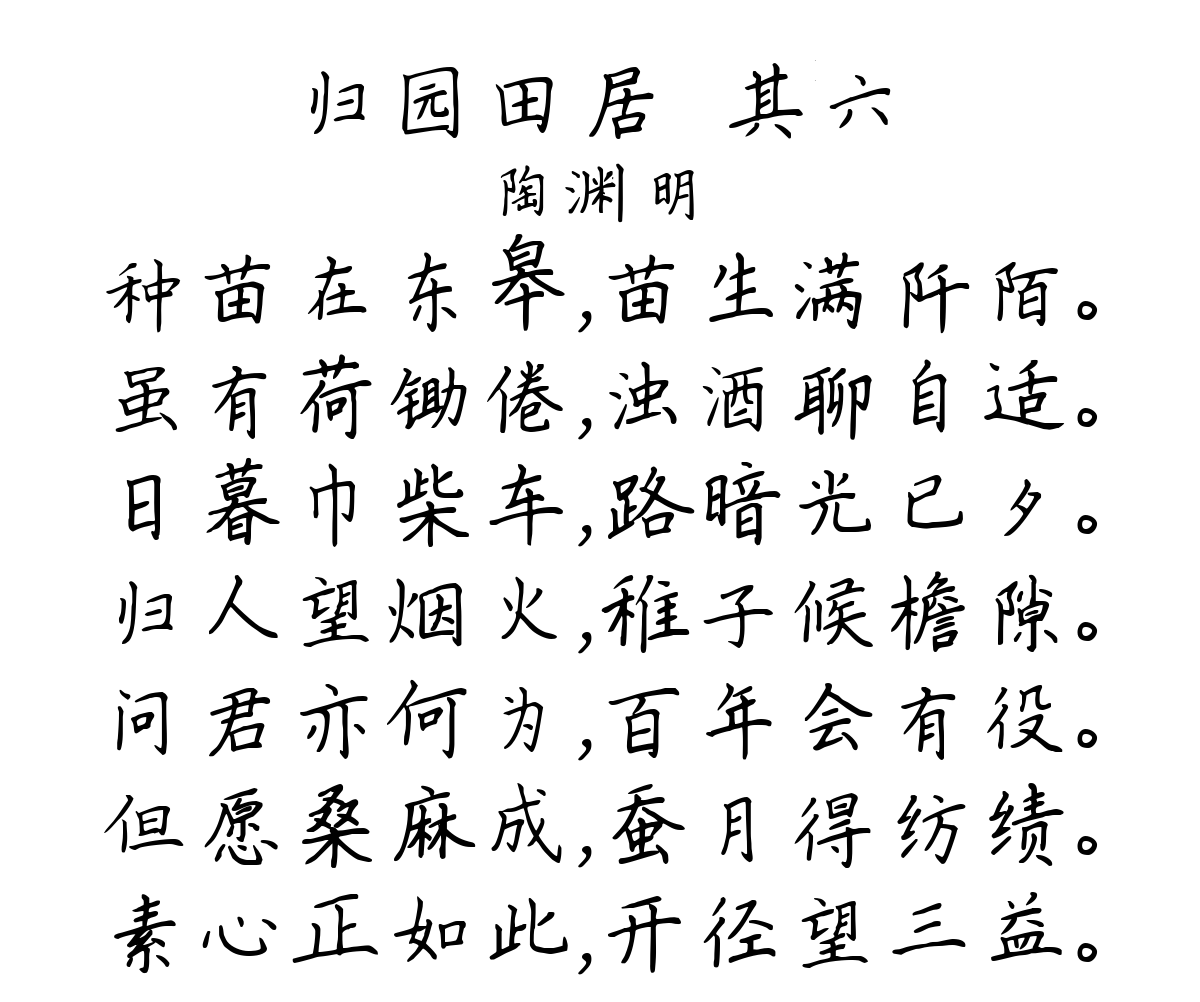 归园田居 其六
陶渊明
种苗在东皋,苗生满阡陌。
虽有荷锄倦,浊酒聊自适。
日暮巾柴车,路暗光已夕。
归人望烟火,稚子候檐隙。
问君亦何为,百年会有役。
但愿桑麻成,蚕月得纺绩。
素心正如此,开径望三益。